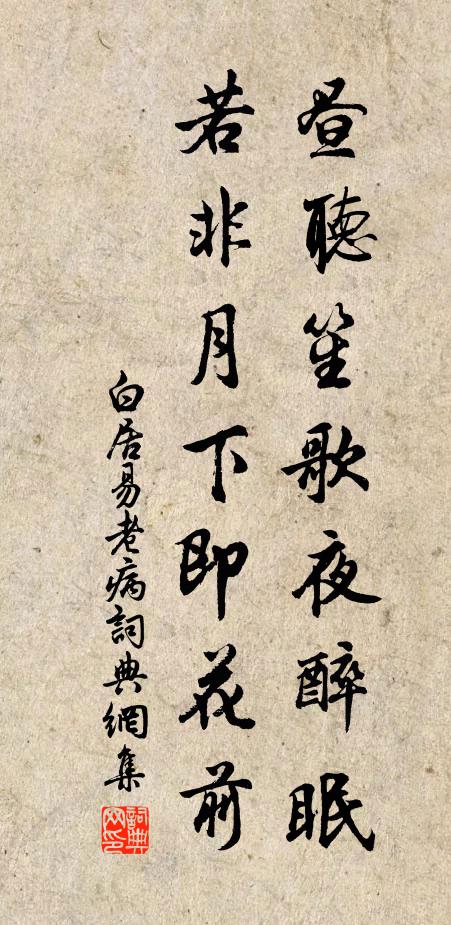 昼聽笙歌夜醉眠
若非月下即花前
白居易老病詞典網集
詞典網印